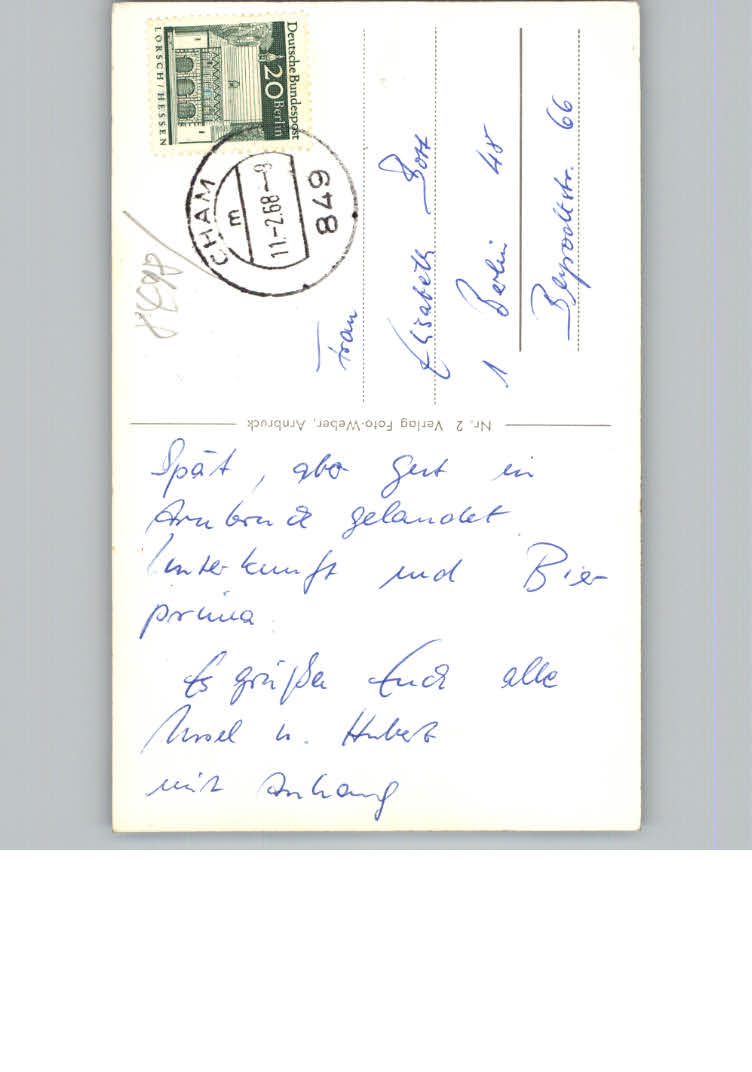 Deutsche Bundespost
20 Berlin
LORSCH/HESSEN
CHAM
m
11.-2.68--9
849
Frau
Elisabeth
1 Berlin 48
66
Nr. 2 Verlag Foto-Weber, Arnbruck
Spät, aber gut in
Arnbruck gelandet
Unterkunft und Bier
prima
Es grüßen Euch alle
Ursel u. Hubert
mit Anhang